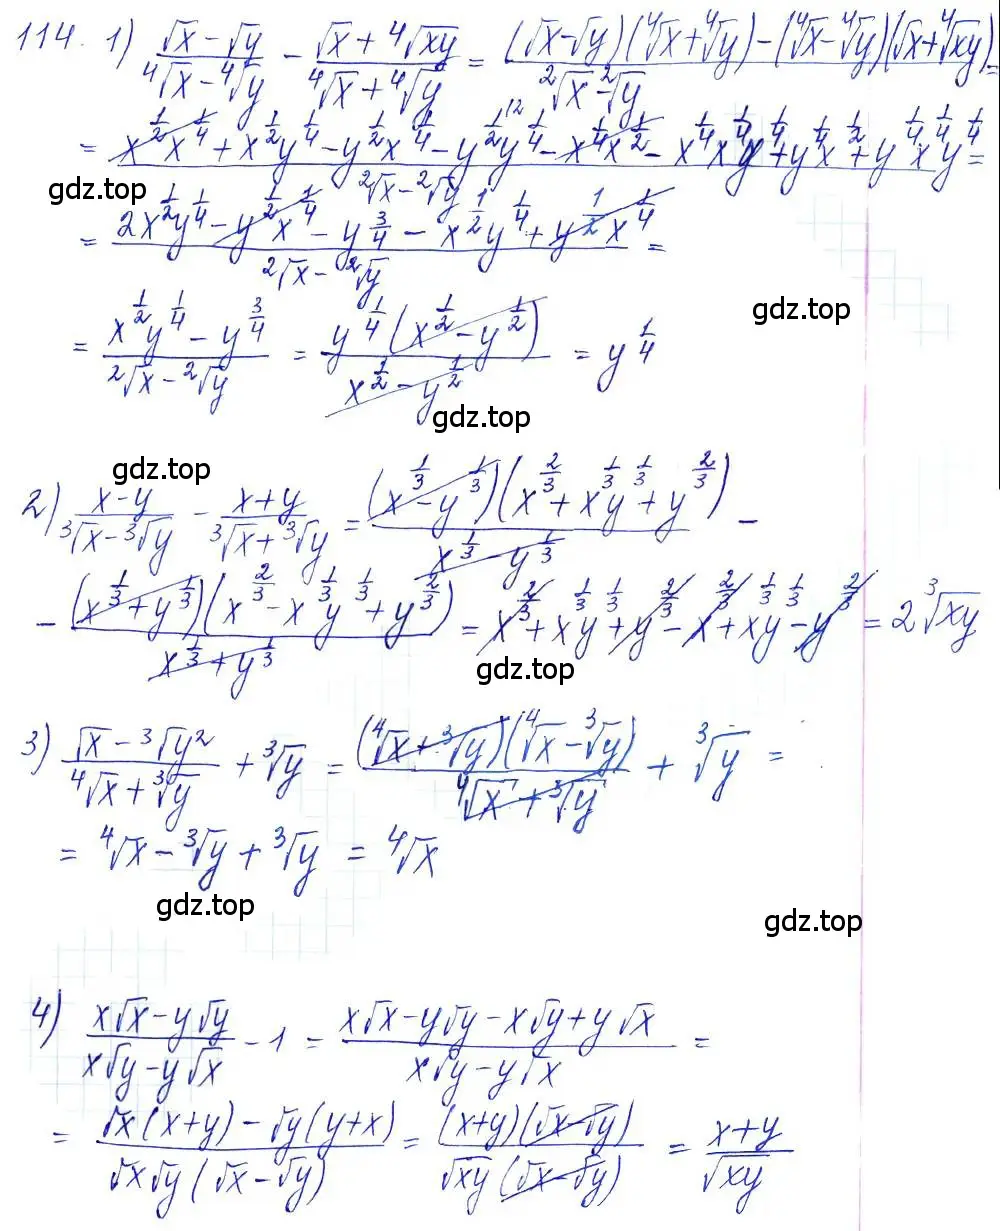 114. 1) (√x - √y)/(⁴√x - ⁴√y) - (√x + ⁴√xy)/(⁴√x + ⁴√y) = ((√x - √y)(⁴√x + ⁴√y) - (⁴√x - ⁴√y)(√x + ⁴√xy))/(²√x - ²√y) =
= (x^(1/2)x^(1/4) + x^(1/2)y^(1/4) - y^(1/2)x^(1/4) - y^(1/2)y^(1/4) - x^(1/4)x^(1/2) - x^(1/4)x^(1/4)y^(1/4) + y^(1/4)x^(1/2) + y^(1/4)x^(1/4)y^(1/4))/(²√x - ²√y) =
gdz.top
= (2x^(1/2)y^(1/4) - y^(1/2)x^(1/4) - y^(3/4) - x^(1/2)y^(1/4) + y^(1/2)x^(1/4))/(²√x - ²√y) =
gdz.top
= (x^(1/2)y^(1/4) - y^(3/4))/(²√x - ²√y) = (y^(1/4)(x^(1/2) - y^(1/2)))/(x^(1/2) - y^(1/2)) = y^(1/4)
gdz.top
gdz.top
2) (x-y)/(³√x - ³√y) - (x+y)/(³√x + ³√y) = ((x^(1/3) - y^(1/3))(x^(2/3) + x^(1/3)y^(1/3) + y^(2/3)))/(x^(1/3) - y^(1/3)) -
- ((x^(1/3) + y^(1/3))(x^(2/3) - x^(1/3)y^(1/3) + y^(2/3)))/(x^(1/3) + y^(1/3)) = x^(2/3) + x^(1/3)y^(1/3) + y^(2/3) - x^(2/3) + x^(1/3)y^(1/3) - y^(2/3) = 2³√xy
gdz.top
3) (√x - ³√y²)/(⁴√x + ³√y) + ³√y = ((⁴√x + ³√y)(⁴√x - ³√y))/(⁴√x + ³√y) + ³√y =
= ⁴√x - ³√y + ³√y = ⁴√x
gdz.top
gdz.top
4) (x√x - y√y)/(x√y - y√x) - 1 = (x√x - y√y - x√y + y√x)/(x√y - y√x) =
= (√x(x+y) - √y(y+x))/(√x√y(√x - √y)) = ((x+y)(√x - √y))/(√xy(√x - √y)) = (x+y)/√xy